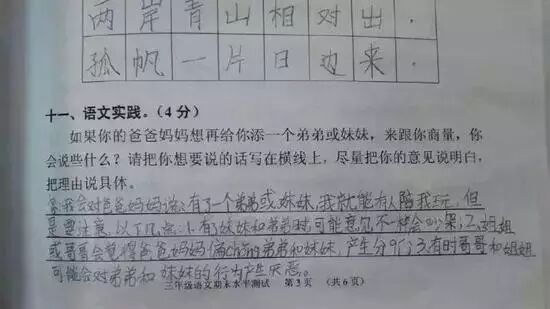 两岸青山相对出.
孤帆一片日边来.
十一、语文实践。(4分)
如果你的爸爸妈妈想再给你添一个弟弟或妹妹，来跟你商量，你
会说些什么？请把你想要说的话写在横线上，尽量把你的意见说明白，
把理由说具体。
我会对爸爸妈妈说：有了一个弟弟或妹妹，我就能有人陪我玩，但
是要注意以下几点：1.有妹妹和弟弟时可能意见不一样会吵架；2.姐姐
或哥哥会觉得爸爸妈妈偏心的弟弟和妹妹，产生分歧；3.有时哥哥和姐姐
可能会对弟弟和妹妹的行为产生厌恶。
三年级语文期末水平测试 第3页 (共6页)